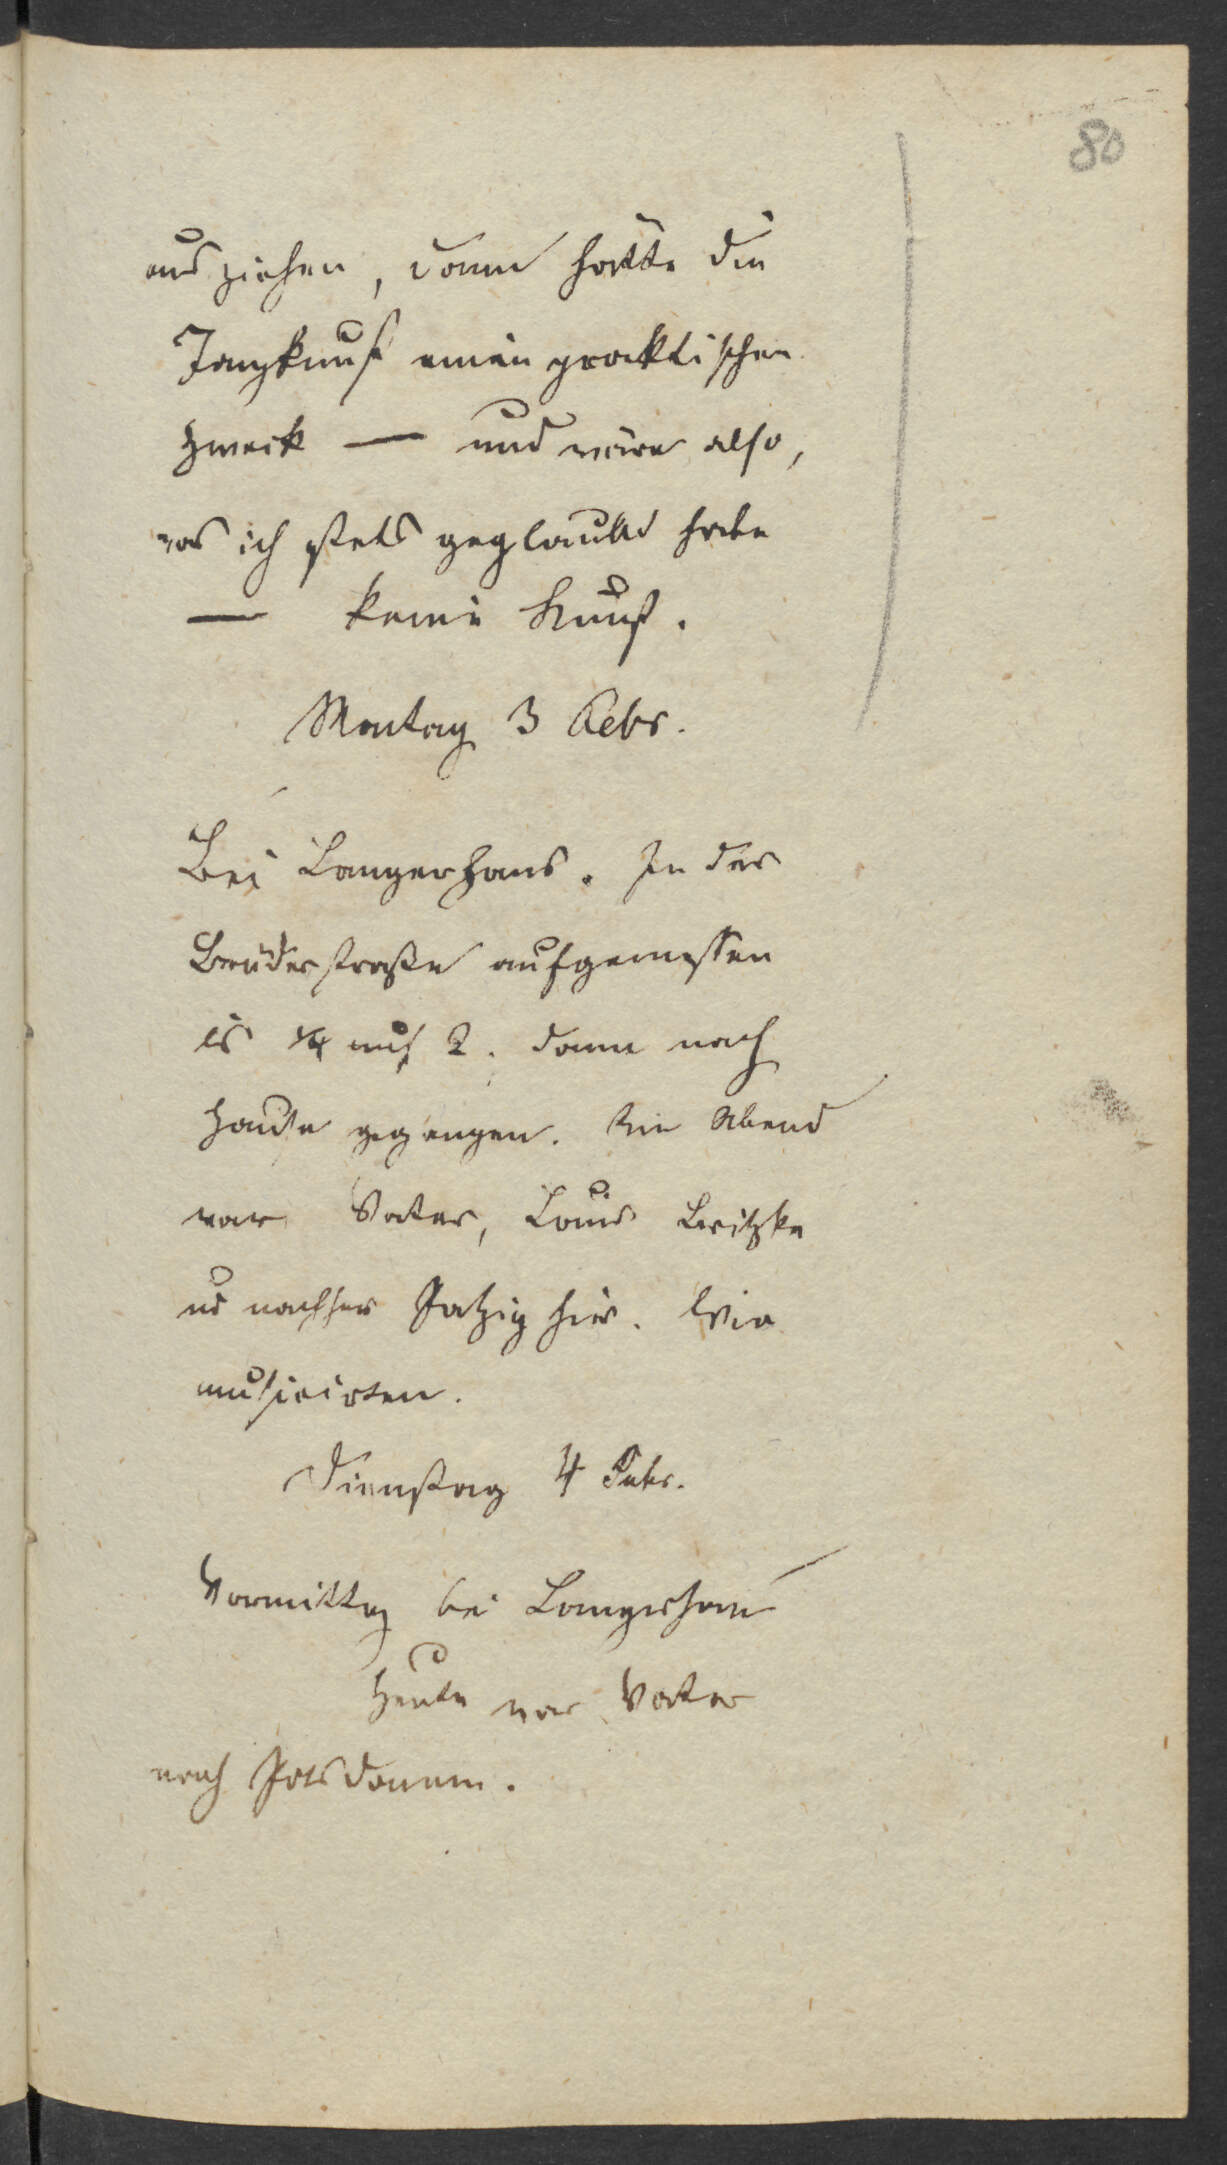 80
ausziehen, dann hätte die
Tanzkunst einen practischen
Zweck — und wäre also,
was ich stets geglaubt habe
— keine Kunst.
Montag 3 Febr.
Bei Langerhans. In der
Brüderstraße aufgemessen
bis ¼ nach 2. dann nach
Hause gegangen. Am Abend
war Vater, Louis Britzke
u nachher Patzig hier. Wir
musicirten.
Dienstag 4 Febr.
Vormittag bei Langerhans
Heute war Vater
nach Potsdamm.